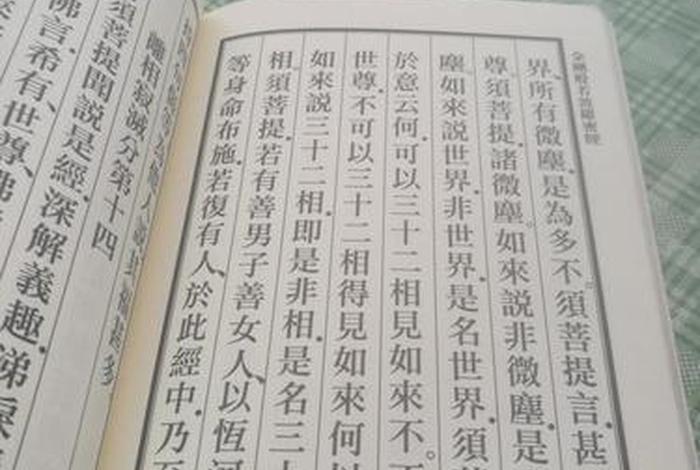 金剛般若波羅蜜經
界、所有微塵、是為多不。須菩提言、甚
尊。須菩提、諸微塵。如來說非微塵、是
塵。如來說世界、非世界、是名世界。須
於意云何、可以三十二相見如來不。不
世尊、不可以三十二相得見如來、何以
如來說三十二相、即是非相、是名三十
相。須菩提、若有善男子善女人、以恆河
等身命布施、若復有人、於此經中、乃至
離相寂滅分第十四
須菩提聞說是經、深解義趣、涕淚
佛言、希有、世尊、佛